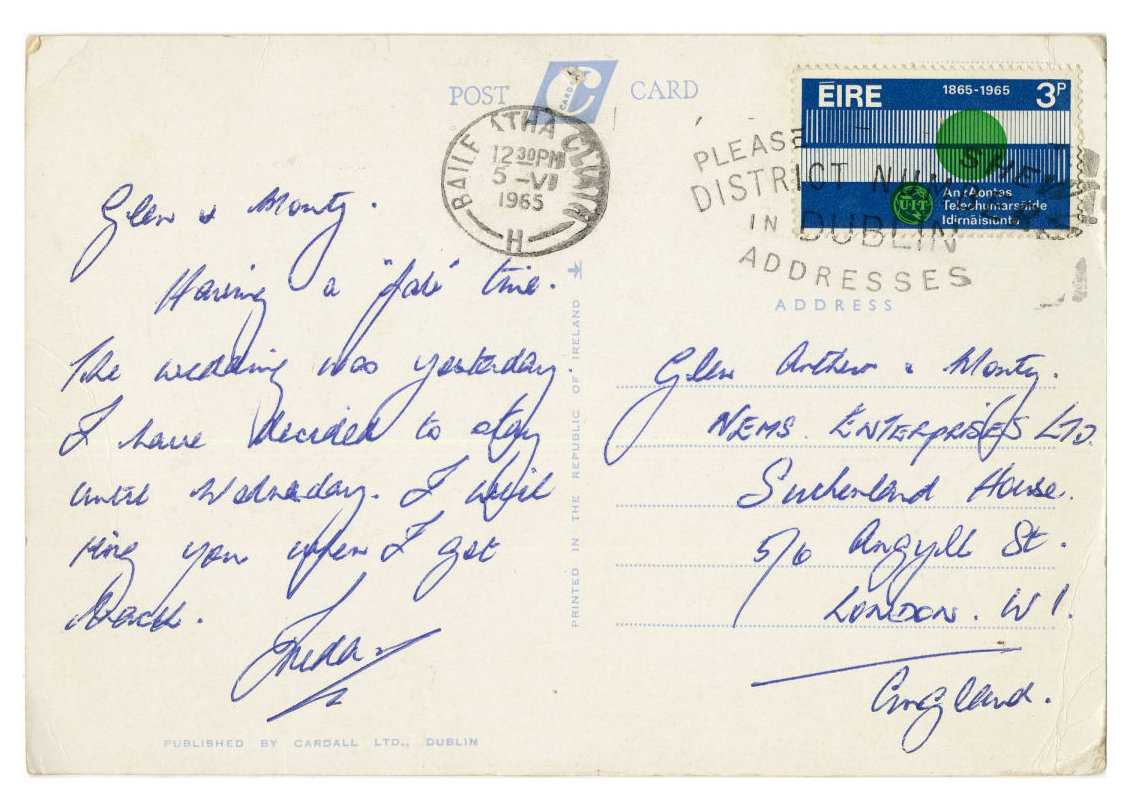 POST CARD
CARDALL
BAILE ÁTHA CLIATH
12 30PM
5 -VII
1965
H
PLEASE SHEW
DISTRICT NUMBERS
IN DUBLIN
ADDRESSES
ÉIRE 1865-1965 3P
UIT
An tAontas
Teleachumarsáide
Idirnáisiúnta
Glen & Monty.
Having a "fab" time.
The wedding was yesterday.
I have decided to stay
until Wednesday. I will
ring you when I get
back.
Freda
PUBLISHED BY CARDALL LTD., DUBLIN
PRINTED IN THE REPUBLIC OF IRELAND
ADDRESS
Glen Arthur & Monty.
NEMS. ENTERPRISES LTD.
Sutherland House.
5/6 Argyll St.
LONDON. W1.
England.